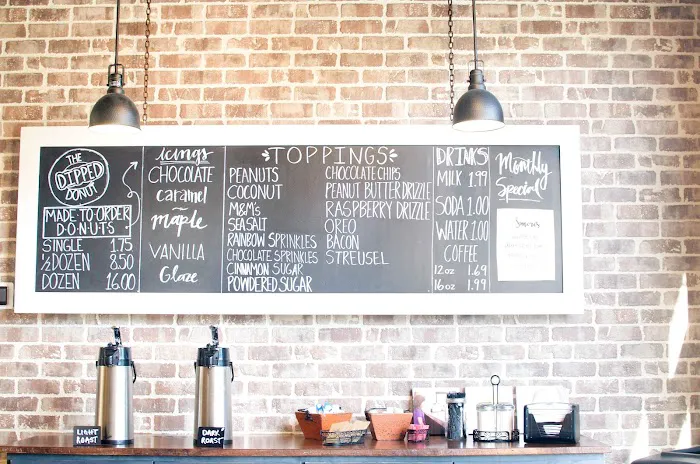 THE
DIPPED
DONUT
MADE-TO-ORDER
DONUTS
SINGLE 1.75
½ DOZEN 8.50
DOZEN 16.00
icings
CHOCOLATE
caramel
maple
VANILLA
Glaze
TOPPINGS
PEANUTS
COCONUT
M&M's
SEA SALT
RAINBOW SPRINKLES
CHOCOLATE SPRINKLES
CINNAMON SUGAR
POWDERED SUGAR
CHOCOLATE CHIPS
PEANUT BUTTER DRIZZLE
RASPBERRY DRIZZLE
OREO
BACON
STREUSEL
DRINKS
MILK 1.99
SODA 1.00
WATER 1.00
COFFEE
12oz 1.69
16oz 1.99
Monthly
Special
LIGHT
ROAST
DARK
ROAST